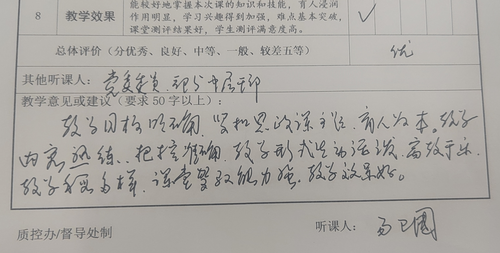 能较好地掌握本次课的知识和技能，育人浸润
8 教学效果 作用明显，学习兴趣得到加强，难点基本突破， √
课堂测评结果好，学生测评满意度高。
总体评价（分优秀、良好、中等、一般、较差五等） 优
其他听课人：党委委员、部分中层干部
教学意见或建议（要求50字以上）：
教学目标明确，紧扣思政课主线，育人为本。教学
内容熟练、把控准确，教学形式生动活泼，寓教于乐，
教学多样，课堂驾驭能力强，教学效果好。
质控办/督导处制 听课人：